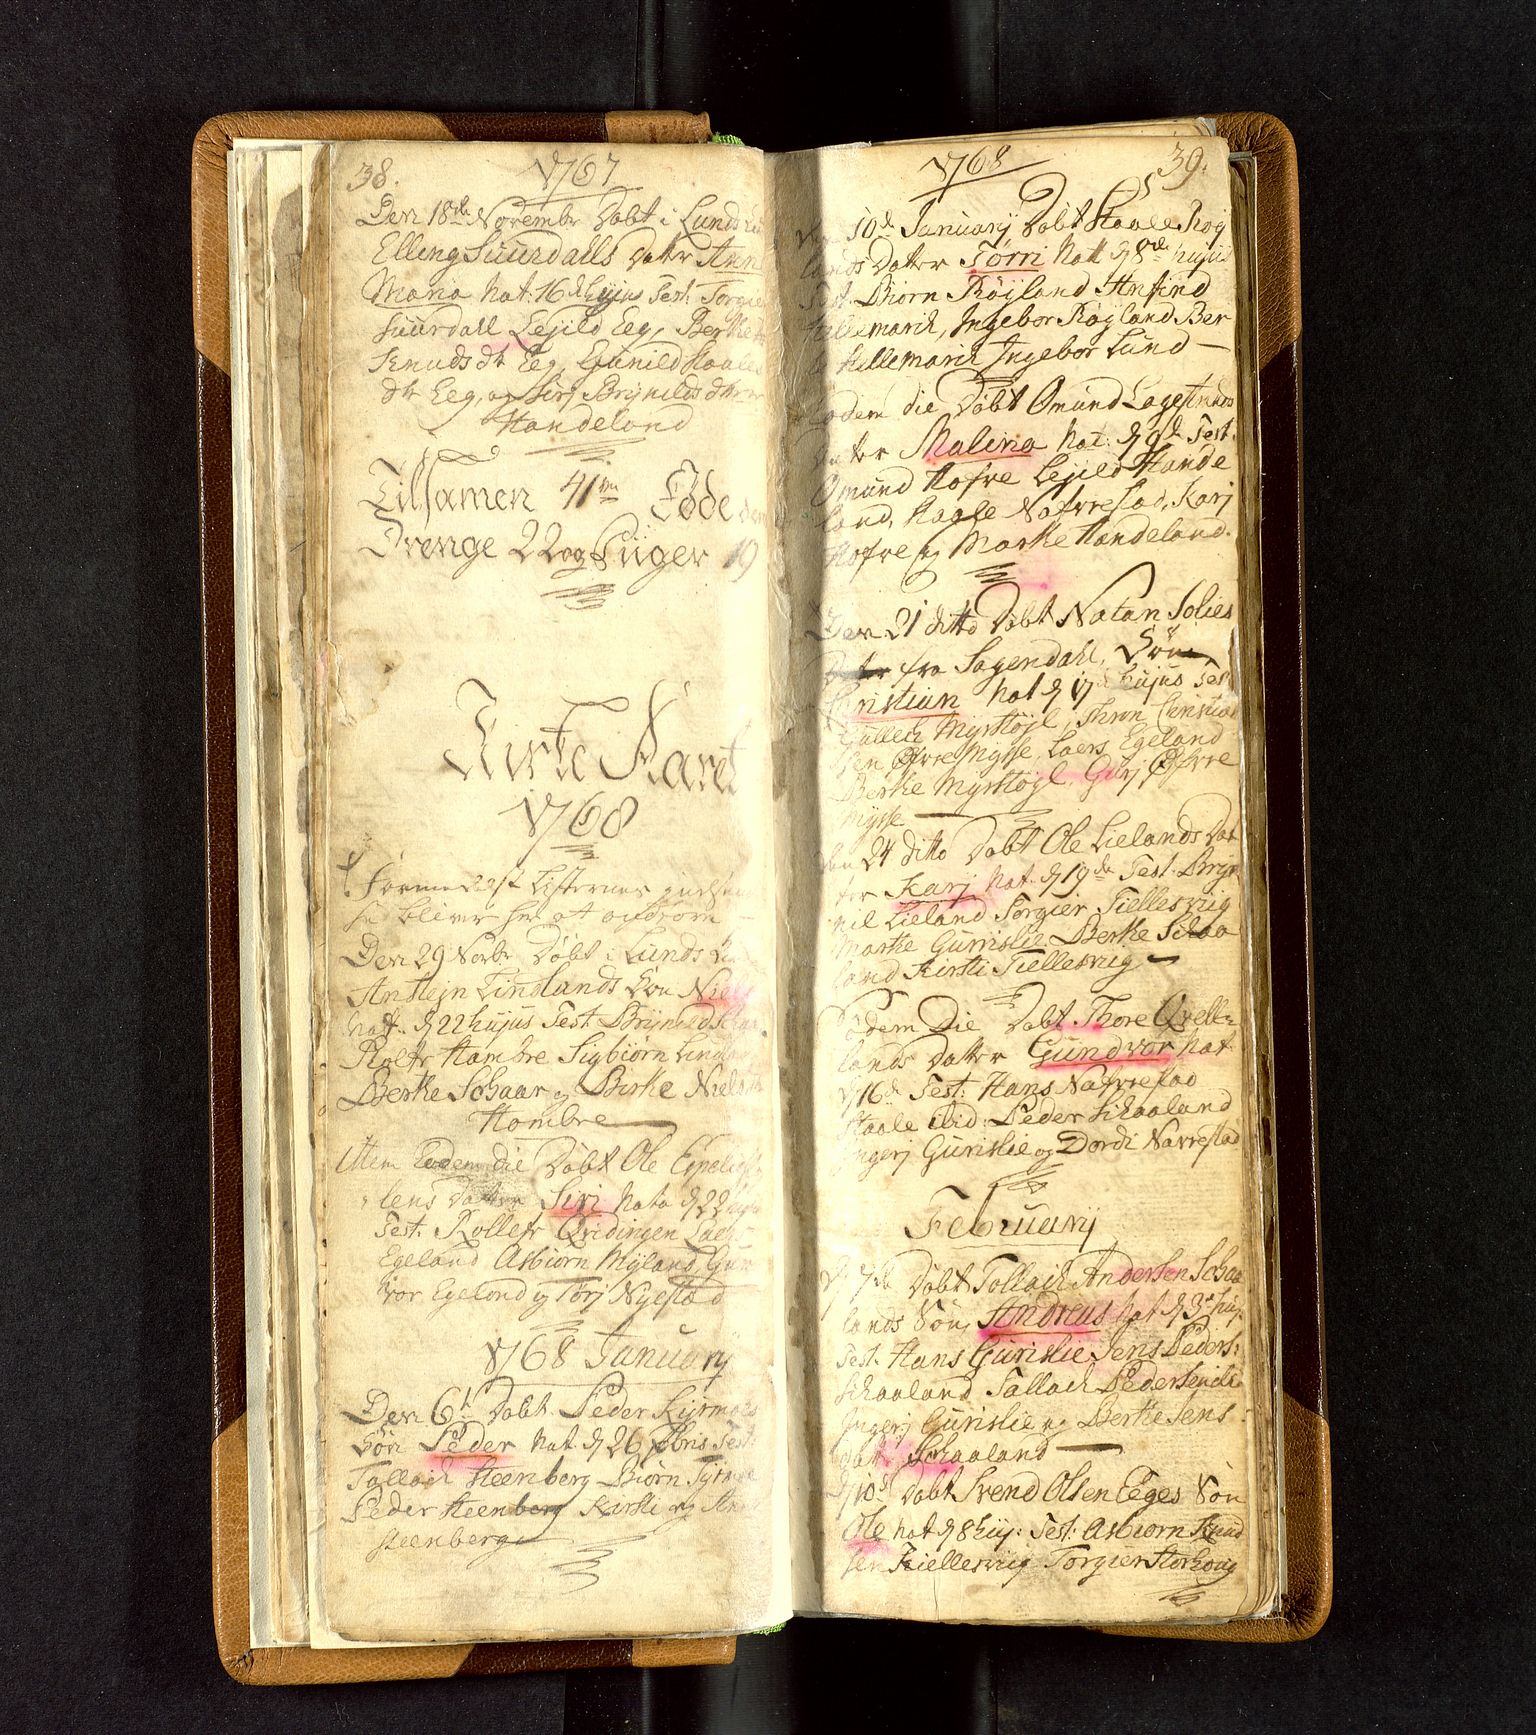 38. 1767
Den 18de Novembr Døbt i Lunds
Elling Suurdalls Datter Anne
Maria Nat: 16 d hujus Test: Torgier
Suurdall Lejild Eeg, Berthe
Knuds dtr Eeg, Gunild Staales
dtr Eeg, og Sirj Brynilds dtr
Handeland
Tilsamen 41 Føde
Drenge 22 og Piiger 19
Kirke Aaret
1768
Formedelst
blever her at anføre
Den 29 Novbr Døbt i Lunds
Anstejn Lindlands Søn Niels
Natt. d 22 hujus Test Brynild
Rolfr Hambre Sigbiørn Lindland
Berthe Schaar og Birthe Niels
Hambre
Item Eodem die Døbt Ole Espelids
lens Datter Siri Nata d 22
Test. Rollefr Qvidingen Laers
Egeland Asbiørn Myland Gun
vor Egeland og Tørj Nyestad
1768 Januarij
Den 6t Døbt Peder Kyrmoes
Søn Peder Nat d 26 Xbris Test:
Tallach Steenberg Biørn
Peder Steenberg Kirsti og
Steenberg
1768 39.
Den 10de Januarij Døbt Staale Røy
lands Datter Tørri Natt d 8de hujus
Test. Biørn Røyland Anfind
Hellemarch, Ingebor Røyland Ber
te Hellemarch Ingebor Lund
Eodem die Døbt Omund Lagestrands
Datter Malena Nat: d 9de Test.
Omund Hofve Lejild Hande
land, Aagse Nafvrestad, Karj
Hofve og Marthe Handeland.
Den 21 ditto Døbt Natan Solies
fra Sagendahl, Søn
Christian Nat d 17 hujus Test
Gulleck Myssløyl, Thron Christian
sen Øfvre Mysse, Laers Egeland
Berthe Myssløyl, Gurj Øfvre
Mysse
den 24 ditto Døbt Ole Lielands Dat
ter Karj Nat. d 19de Test. Bryn
nil Lieland Torgier Tiellesviig
Marthe Gurrislie Berthe Schaa
land Kirsti Tiellesviig
Eodem Die Døbt Thore Qvelle
lands Datter Gundvor Nat
d 16d Test: Hans Nafvrestad
Staale ibid: Peder Schaaland
Ingerj Gurislie og Dordi Navrestad
Februarij
d 7de Døbt Tollach Andersen Schaa
lands Søn, Andreas Nat d 3de huj.
Test. Hans Gurislie Jens Peders:
Schaaland Tallach Pedersen
Ingerj Gurislie og Berthe Jens
datr Schaaland
d 10d Døbt Svend Olsen Eeges Søn
Ole Nat d 8 huj: Test: Asbiørn Knud
sen Kiellesviig Torgier Storhoug